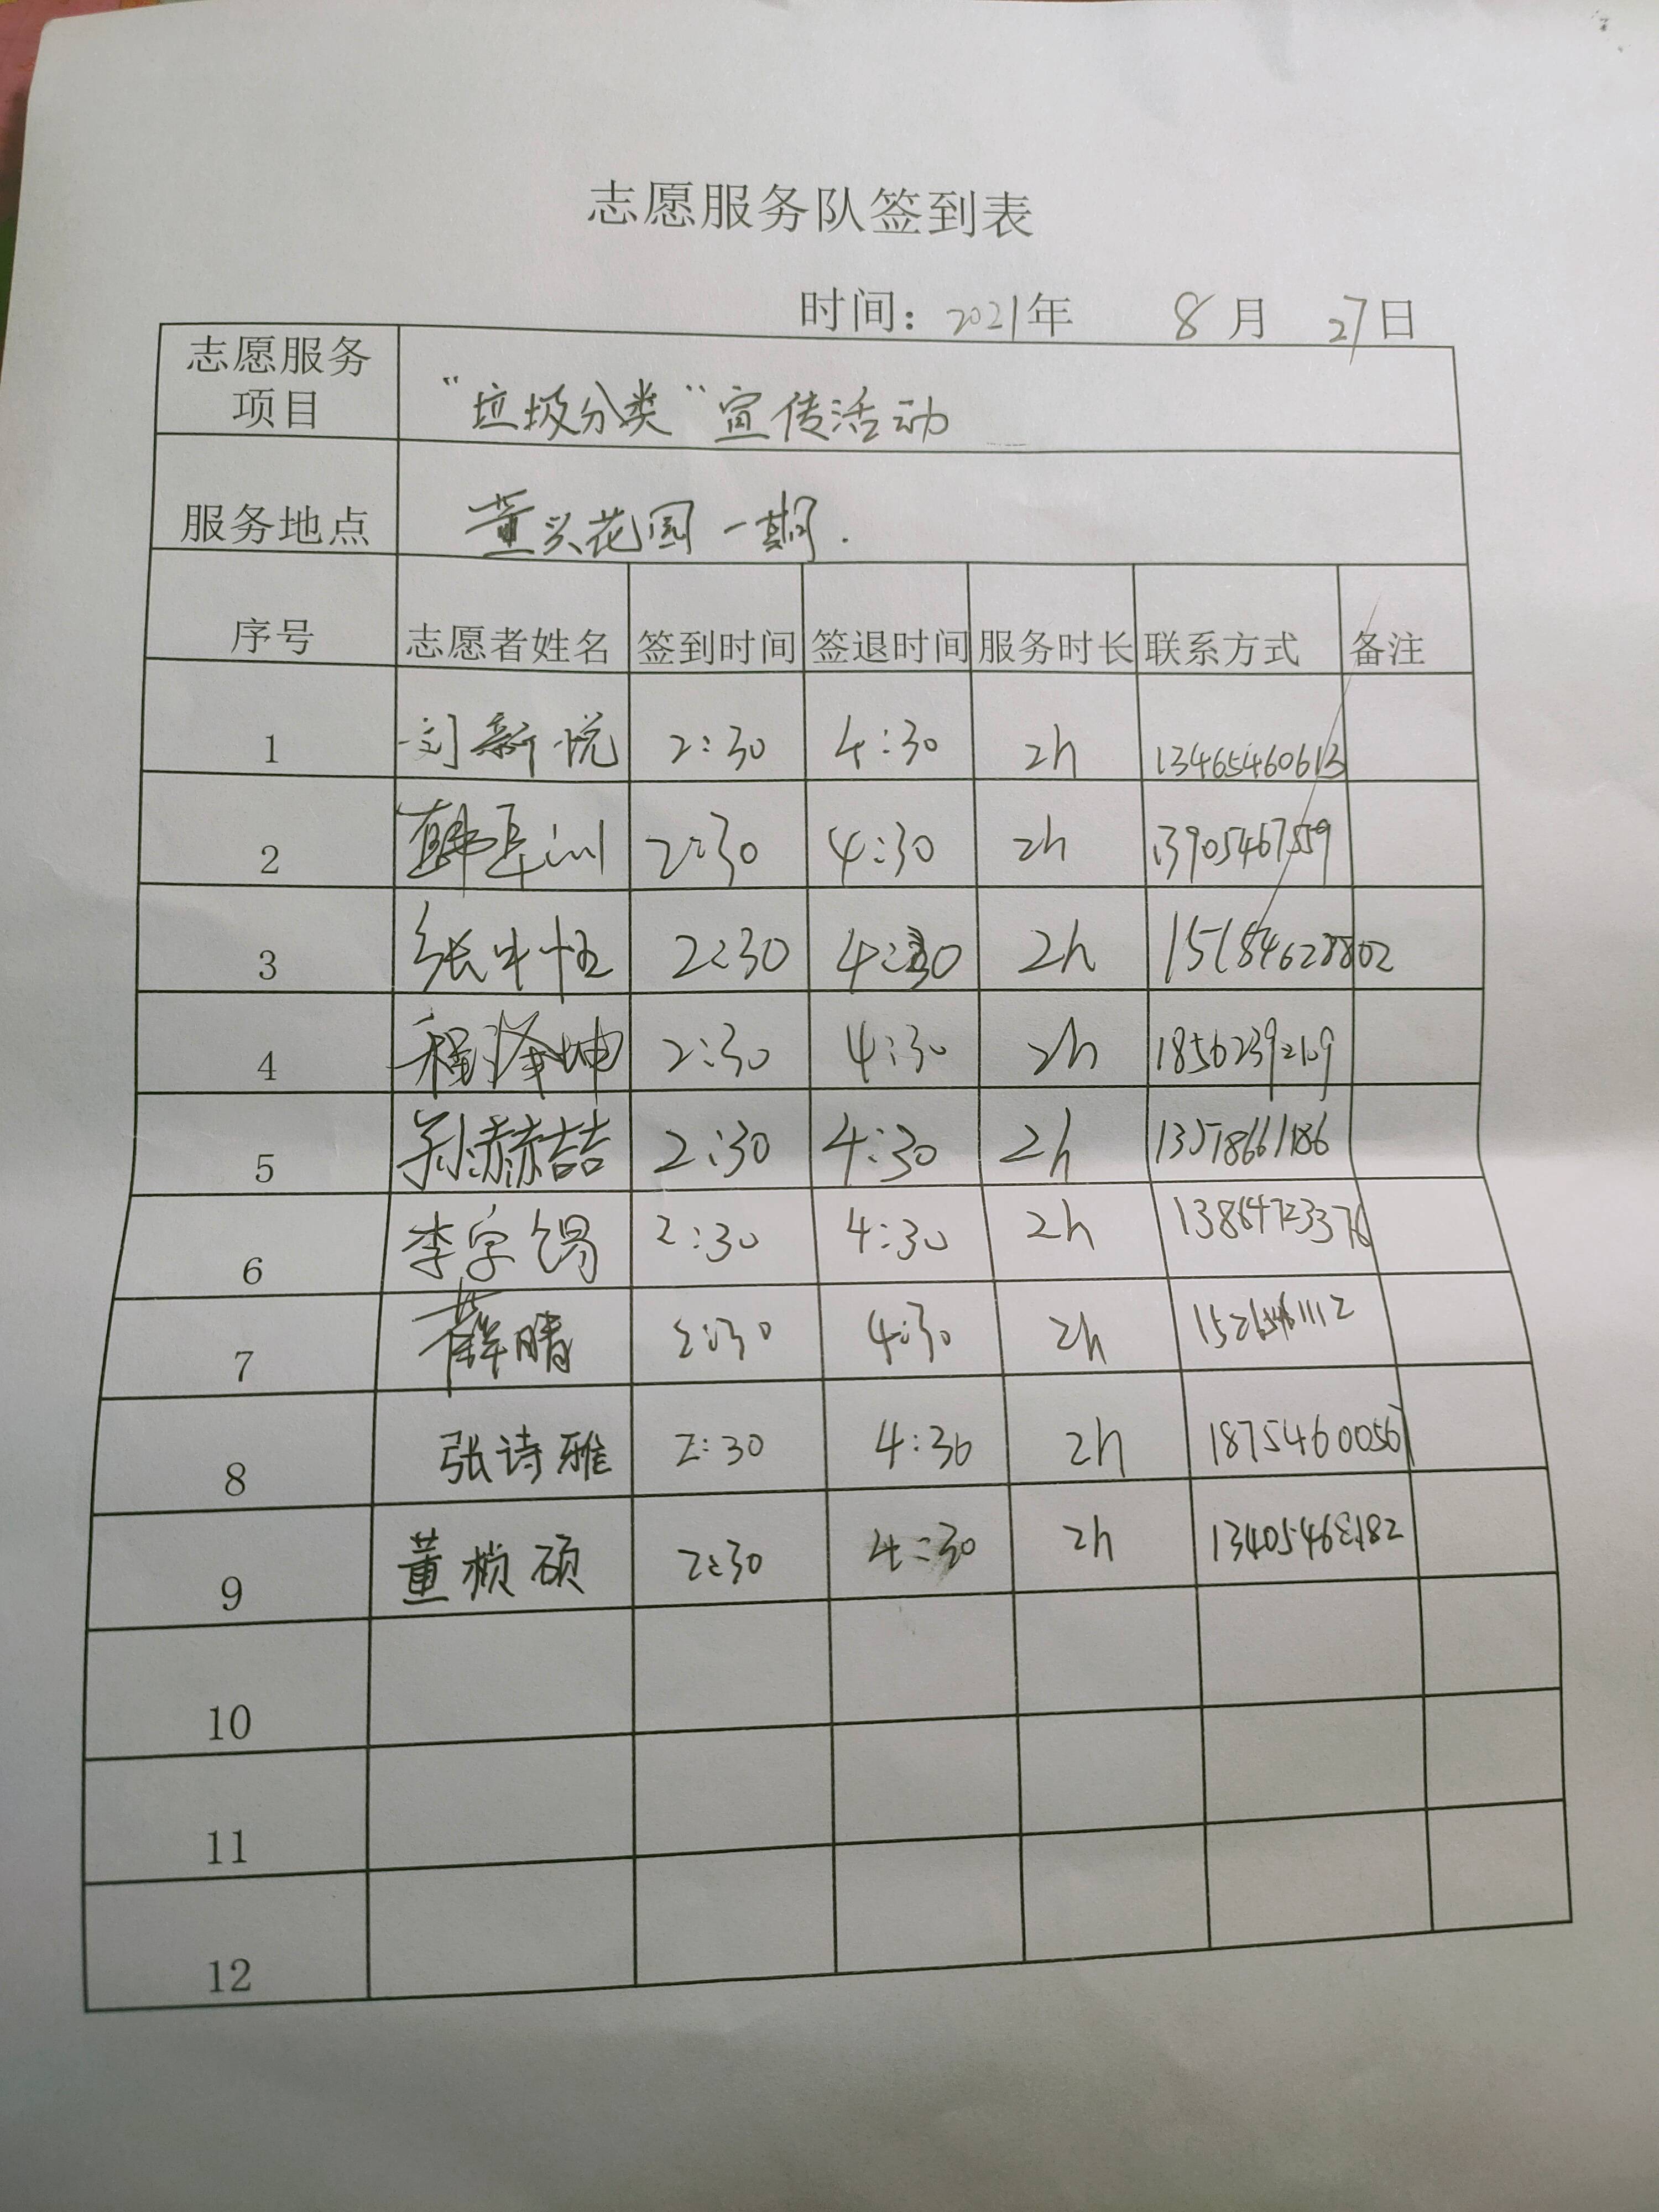 志愿服务队签到表
时间：2021年 8月 27日
志愿服务项目 “垃圾分类”宣传活动
服务地点 董兴花园一期.
序号 志愿者姓名 签到时间 签退时间 服务时长 联系方式 备注
1 刘新悦 2:30 4:30 2h 13465460613
2 韩 2:30 4:30 2h 13905467559
3 张中恒 2:30 4:30 2h 15184628802
4 程泽坤 2:30 4:30 2h 18562392109
5 孙赫喆 2:30 4:30 2h
6 李字锡 2:30 4:30 2h
7 薛晴 2:30 4:30 2h
8 张诗雅 2:30 4:30 2h 18754600561
9 董桢硕 2:30 4:30 2h
10
11
12